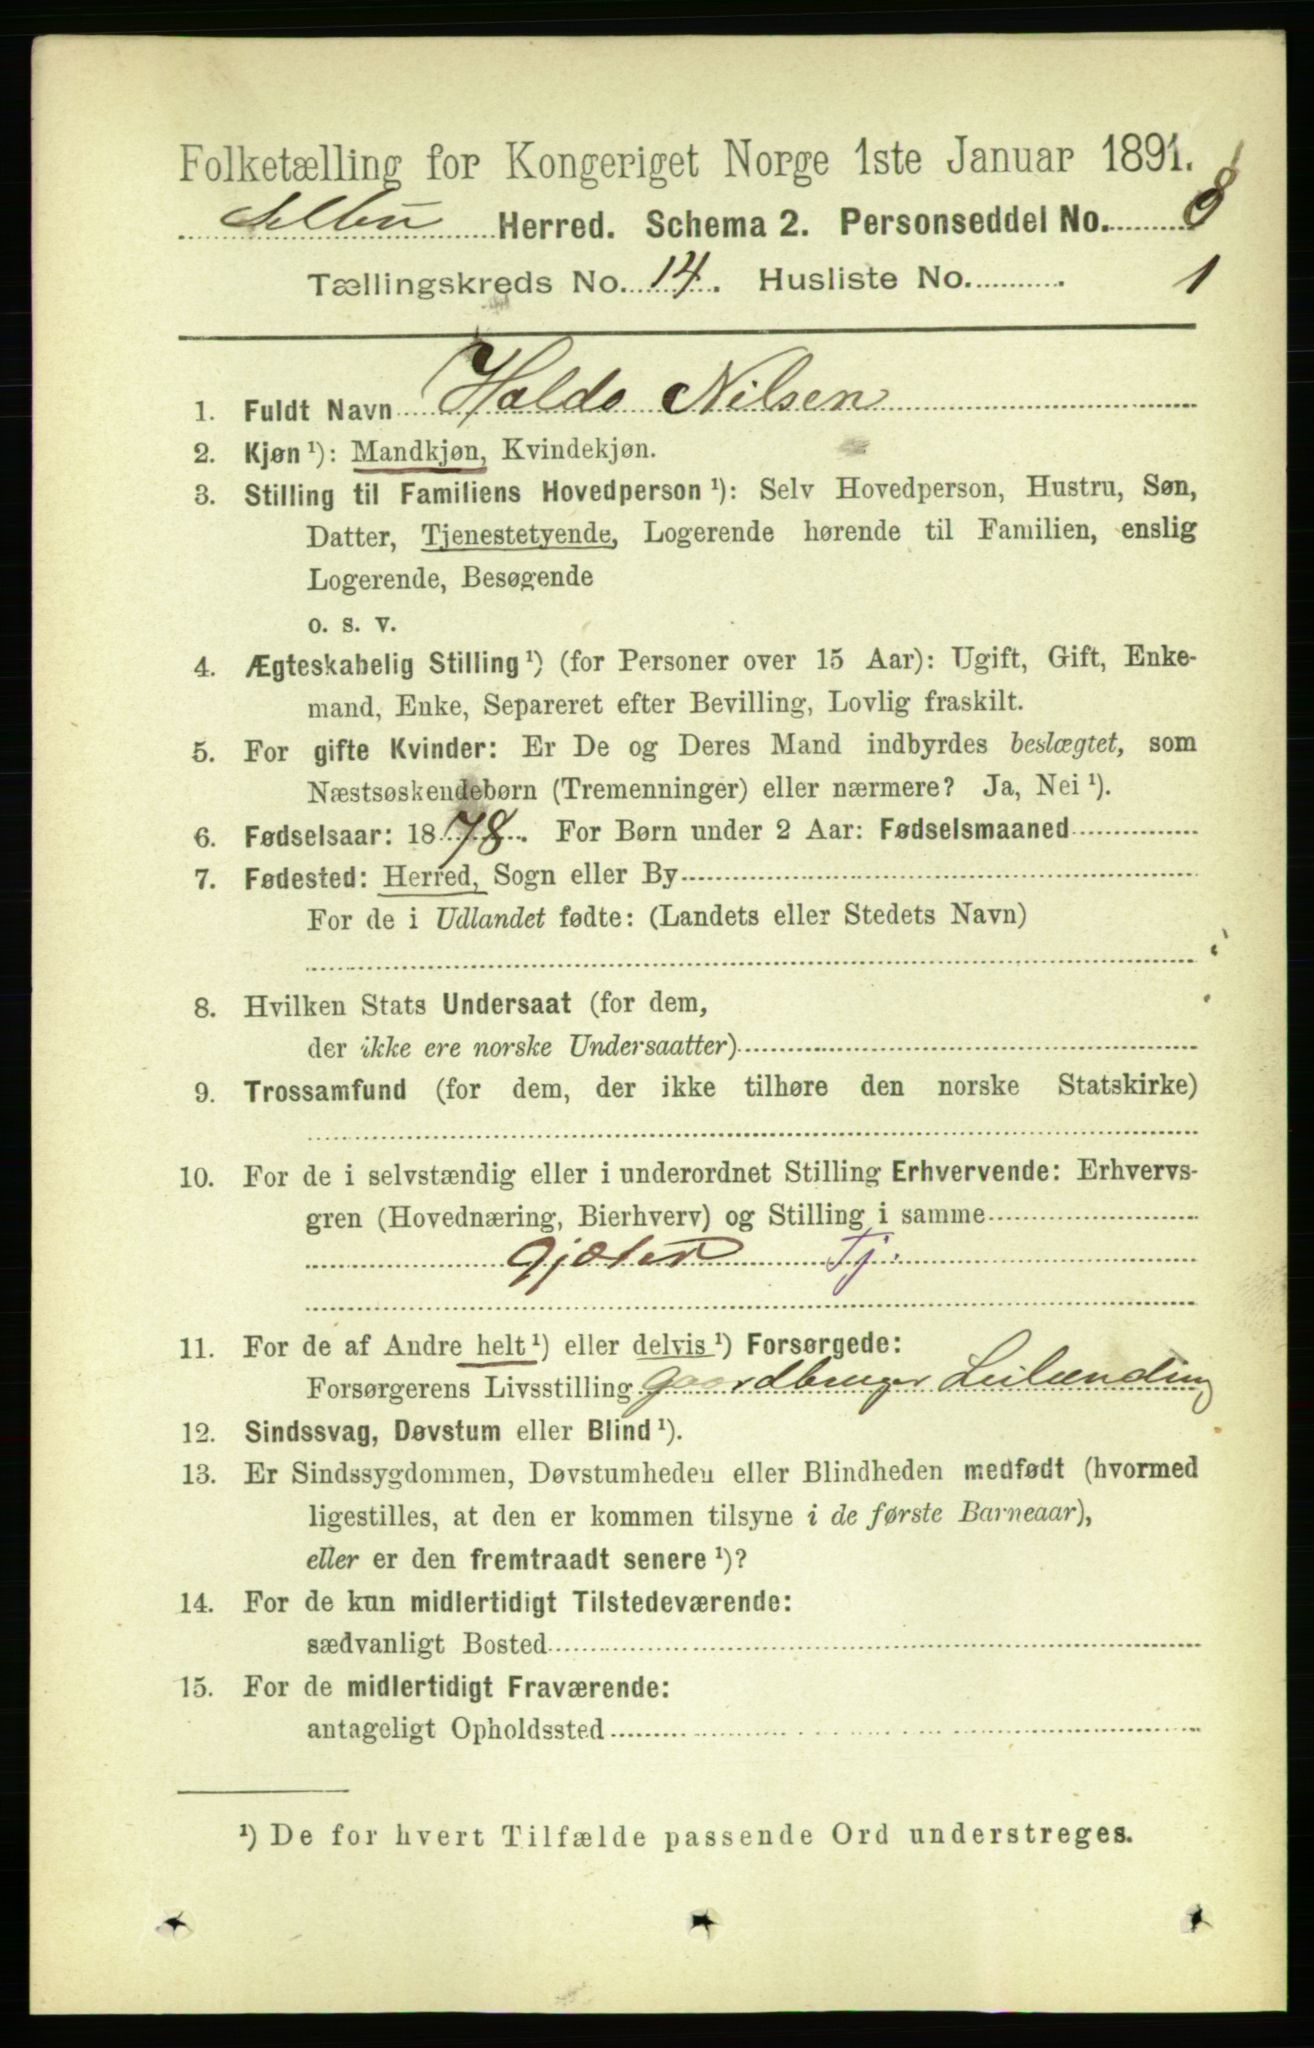 Folketælling for Kongeriget Norge 1ste Januar 1891.
Selbu Herred. Schema 2. Personseddel No. 8
Tællingskreds No. 14. Husliste No. 1
1. Fuldt Navn Haldo Nilsen
2. Kjøn ¹): Mandkjøn, Kvindekjøn.
3. Stilling til Familiens Hovedperson ¹): Selv Hovedperson, Hustru, Søn,
Datter, Tjenestetyende, Logerende hørende til Familien, enslig
Logerende, Besøgende
o. s. v.
4. Ægteskabelig Stilling ¹) (for Personer over 15 Aar): Ugift, Gift, Enke-
mand, Enke, Separeret efter Bevilling, Lovlig fraskilt.
5. For gifte Kvinder: Er De og Deres Mand indbyrdes beslægtet, som
Næstsøskendebørn (Tremenninger) eller nærmere? Ja, Nei ¹).
6. Fødselsaar: 1878. For Børn under 2 Aar: Fødselsmaaned
7. Fødested: Herred, Sogn eller By
For de i Udlandet fødte: (Landets eller Stedets Navn)
8. Hvilken Stats Undersaat (for dem,
der ikke ere norske Undersaatter)
9. Trossamfund (for dem, der ikke tilhøre den norske Statskirke)
10. For de i selvstændig eller i underordnet Stilling Erhvervende: Erhvervs-
gren (Hovednæring, Bierhverv) og Stilling i samme
Gjæter Tj.
11. For de af Andre helt ¹) eller delvis ¹) Forsørgede:
Forsørgerens Livsstilling Gaardbruger Leilænding
12. Sindssvag, Døvstum eller Blind ¹).
13. Er Sindssygdommen, Døvstumheden eller Blindheden medfødt (hvormed
ligestilles, at den er kommen tilsyne i de første Barneaar),
eller er den fremtraadt senere ¹)?
14. For de kun midlertidigt Tilstedeværende:
sædvanligt Bosted
15. For de midlertidigt Fraværende:
antageligt Opholdssted
¹) De for hvert Tilfælde passende Ord understreges.